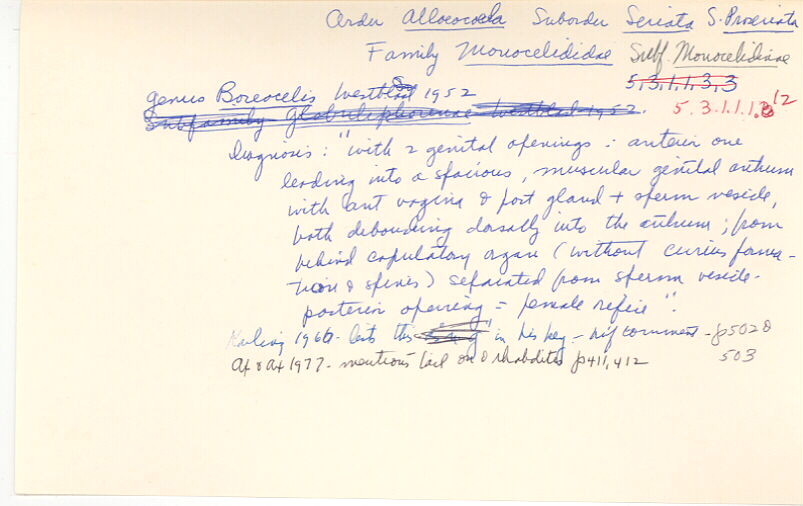 Order Alloeocoela Suborder Seriata S. Proseriata
Family Monocelididae Subf. Monocelidinae
5.3.1.1.3.3
genus Boreocelis Westblad 1952
5.3.1.1.1.12
Subfamily Westblad 1952.
Diagnosis: "with 2 genital openings: anterior one
leading into a spacious, muscular genital anthrum
with ant vagina & post gland + sperm vesicle,
both debouching dorsally into the anthrum; from
behind copulatory organ (without cirrus forma-
tion & spines) separated from sperm vesicle.
posterior opening = female orifice".
Karling 1966 - lists this in his key - comment - p502 &
503
Ax & Ax 1977 - mentions tail on & rhabdites p411, 412